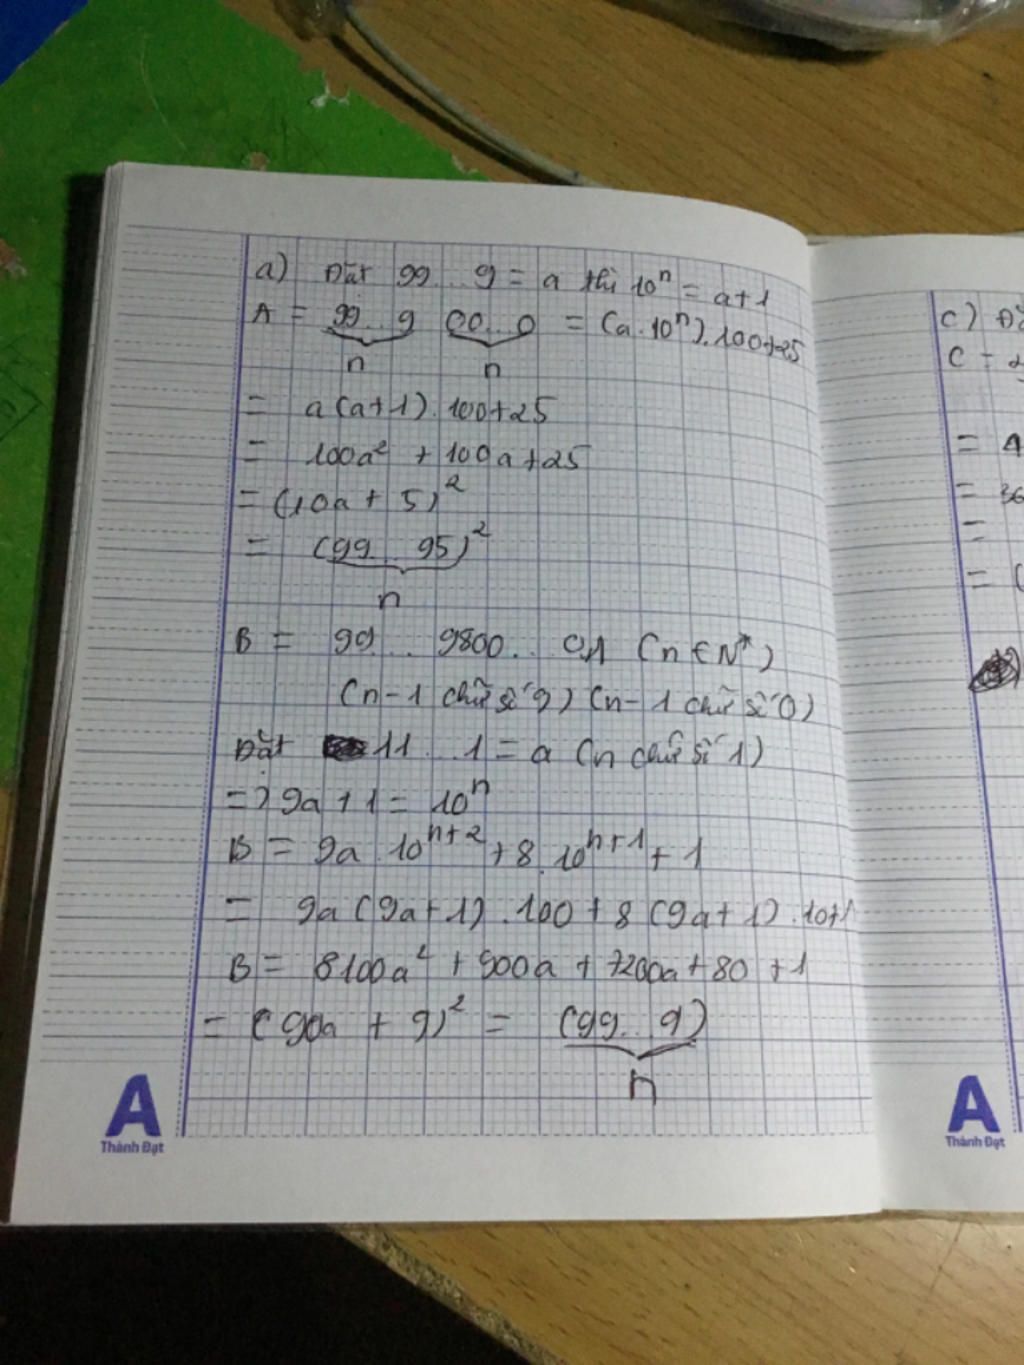 a) Đặt 99...9 = a thì 10ⁿ = a+1
A = 99...9 00...0 = (a.10ⁿ).100+25
n n
= a(a+1).100+25
= 100a² + 100a+25
= (10a + 5)²
= (99...95)²
n
B = 99...9800...01 (n ∈ N*)
(n-1 chữ số 9) (n-1 chữ số 0)
Đặt 11...1 = a (n chữ số 1)
=> 9a+1 = 10ⁿ
B = 9a.10ⁿ⁺² + 8.10ⁿ⁺¹ + 1
= 9a(9a+1).100 + 8(9a+1).10+1
B = 8100a² + 900a + 7200a + 80 + 1
= (90a + 9)² = (99...9)
n
A
Thành Đạt
c)
C =
= 4
= 36
=
= (
A
Thành Đạt